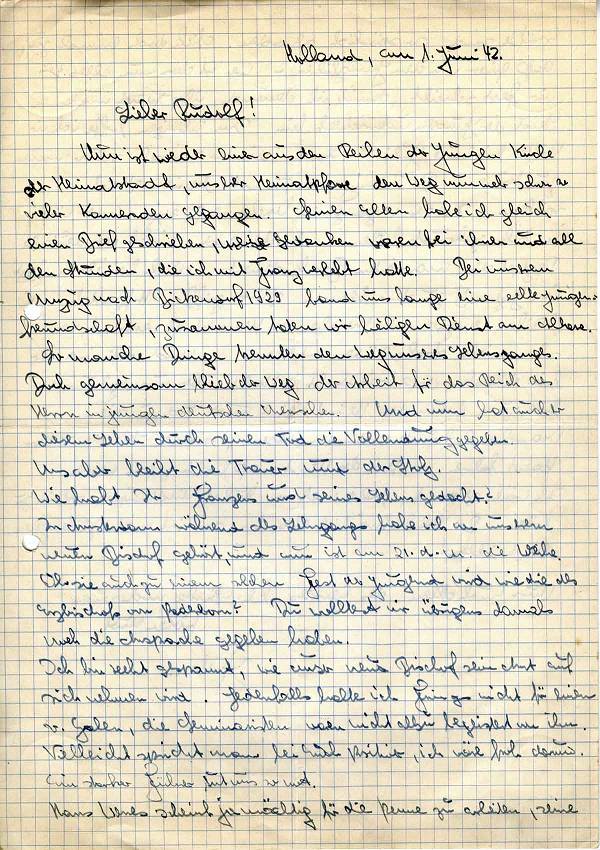 Holland, am 1. Juni 42.
Lieber Rudolf!
Nun ist wieder einer aus den Reihen der Jungen Kirche
der Heimatstadt, unsrer Heimatpfarre den Weg nunmehr schon so
vieler Kameraden gegangen. Seinen Eltern habe ich gleich
einen Brief geschrieben, meine Gedanken waren bei ihnen und all
den Stunden, die ich mit Franz verlebt hatte. Bei unsrem
Umzug nach Bickendorf 1929 band uns lange eine echte Jungen-
freundschaft, zusammen taten wir heiligen Dienst am Altare.
So manche Dinge trennten den Weg unsres Lebensganges.
Doch gemeinsam blieb der Weg der Arbeit für das Reich des
Herrn in jungen deutschen Menschen. Und nun hat auch er
diesem Leben durch seinen Tod die Vollendung gegeben.
Uns aber bleibt die Trauer und der Stolz.
Wie habt Ihr Franzens und seines Lebens gedacht?
In während des Lehrgangs habe ich von unsrem
neuen Bischof gehört, und nun ist am 21. d. M. die Weihe.
Ob sie auch zu einem solchen Fest der Jugend wird wie die des
Erzbischofs von Paderborn? Du wolltest mir übrigens damals
noch die Ansprache gegeben haben.
Ich bin recht gespannt, wie unser neuer Bischof sein Amt auf
sich nehmen wird. Jedenfalls halte ich Frings nicht für einen
v. Galen, die Seminaristen waren nicht allzu begeistert von ihm.
Vielleicht spricht man bei Euch positiver, ich wäre froh darum.
Ein starker Führer tut uns so not.
Hans scheint ja mächtig für die Penne zu arbeiten, seine